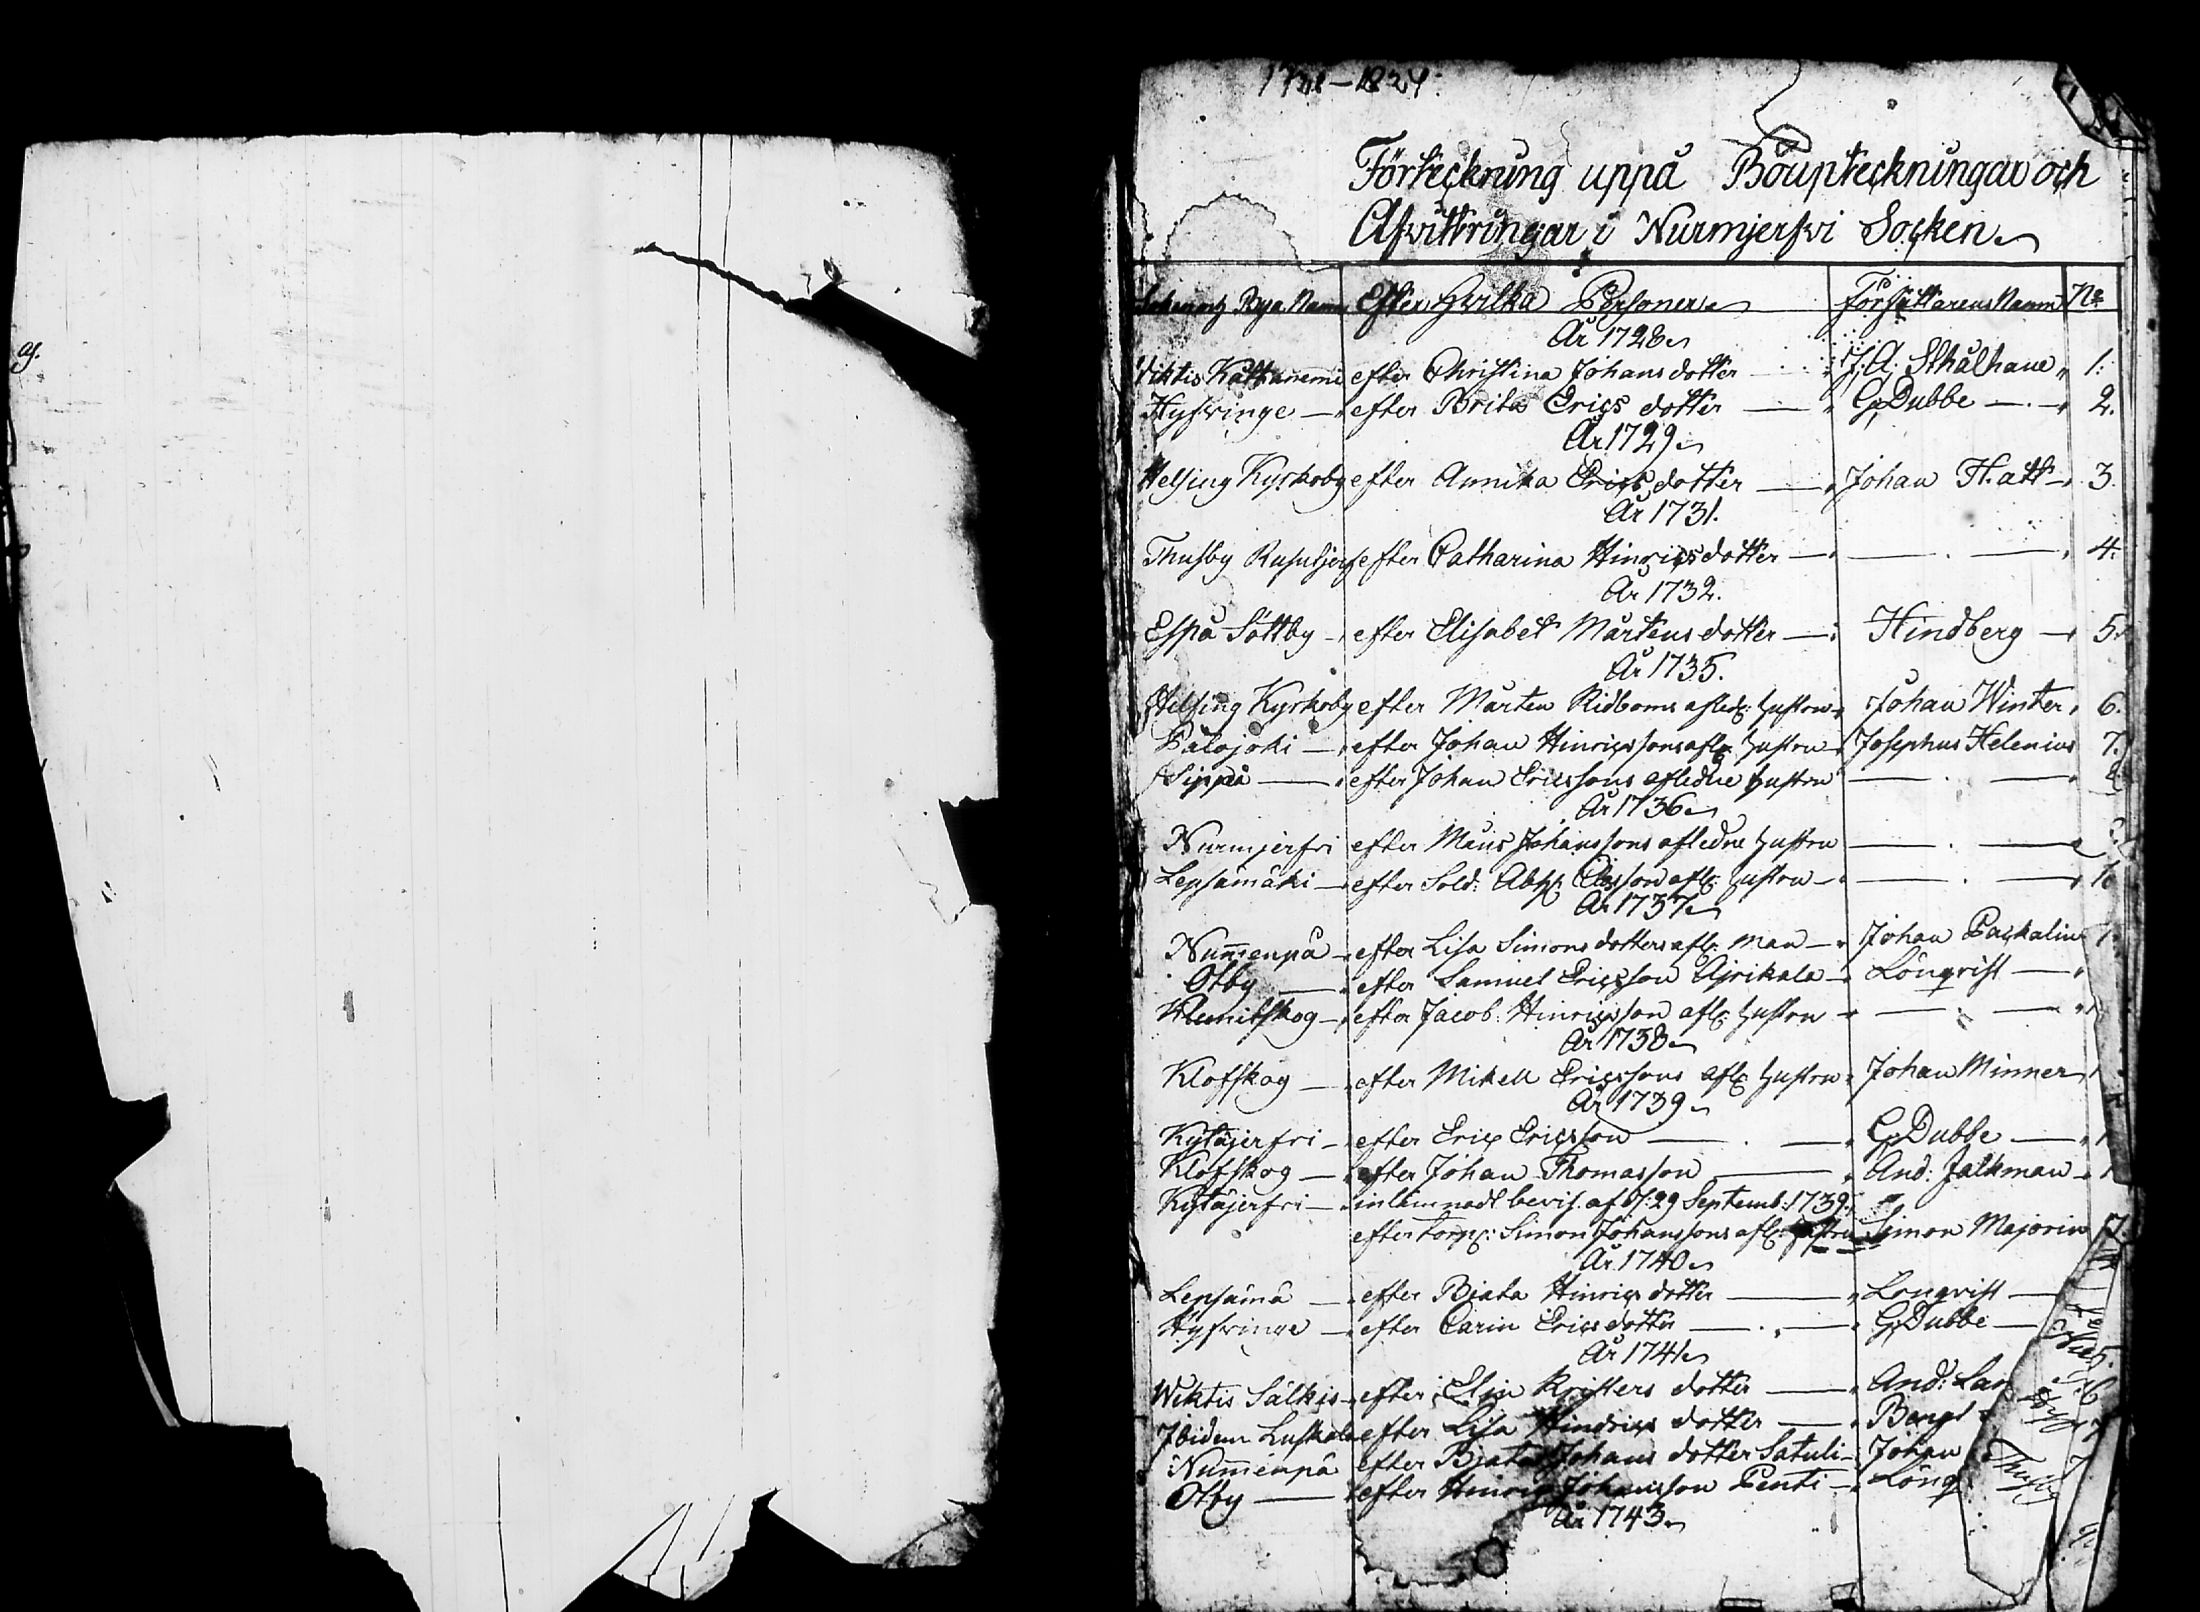 Förteckning uppå Bouptekningar och
Afvittringar i Nurmjerfvi Socken
Sokennes Bya Namn Efter Hvilka Personer Författarens Namn No
År 1728
Viktis efter Christina Johans dotter J: A: Sthålhane 1:
Hyfvinge efter Brita Erics dotter G Dubbe 2.
År 1729
Helsing Kyrkoby efter Annika Erics dotter Johan Hatt 3.
År 1731.
Thusby efter Catharina Hinrics dotter 4.
År 1732.
Espå Söttby efter Elisabet Mårtens dotter Hindberg 5.
År 1735.
Helsing Kyrkoby efter Mårten Ridboms afled: hustru Johan Winter 6.
Palojoki efter Johan Hinricssons afl: hustru Josephus Helenius 7.
Sippå efter Johan Ericssons afledne hustru 8
År 1736
Nurmjerfvi efter Måns Johanssons afledne hustru
Lepsämäki efter Sold: afl: hustru 10
År 1737
Num̄enpä efter Lisa Simons dotters afl: man Johan
Otby efter Samuel Ericsson Lönqvist
Klemitskog efter Jacob Hinricsson afl: hustru
År 1738
Klofskog efter Mikell Ericssons afl: hustru Johan Minner
År 1739
Kytäjerfvi efter Eric Ericsson G Dubbe
Klofskog efter Johan Thomasson And: Falkman
Kytäjerfvi inlämnadt bevis af d: 29 Septemb: 1739
efter torp: Simon Johanssons afl: hustru Simon Majorin
År 1740
Lepsämä efter Beata Hinrics dotter Lönqvist
Hyfvinge efter Carin Erics dotter G Dubbe
År 1741
Wiktis efter Elin Kristers dotter And: Lan
Ibidem efter Lisa Hindrics dotter Bengt
Num̄enpä efter Beata Johans dotter Satuli Johan
Otby efter Hinric Johansson Penti Lönq
Thusby
År 1743